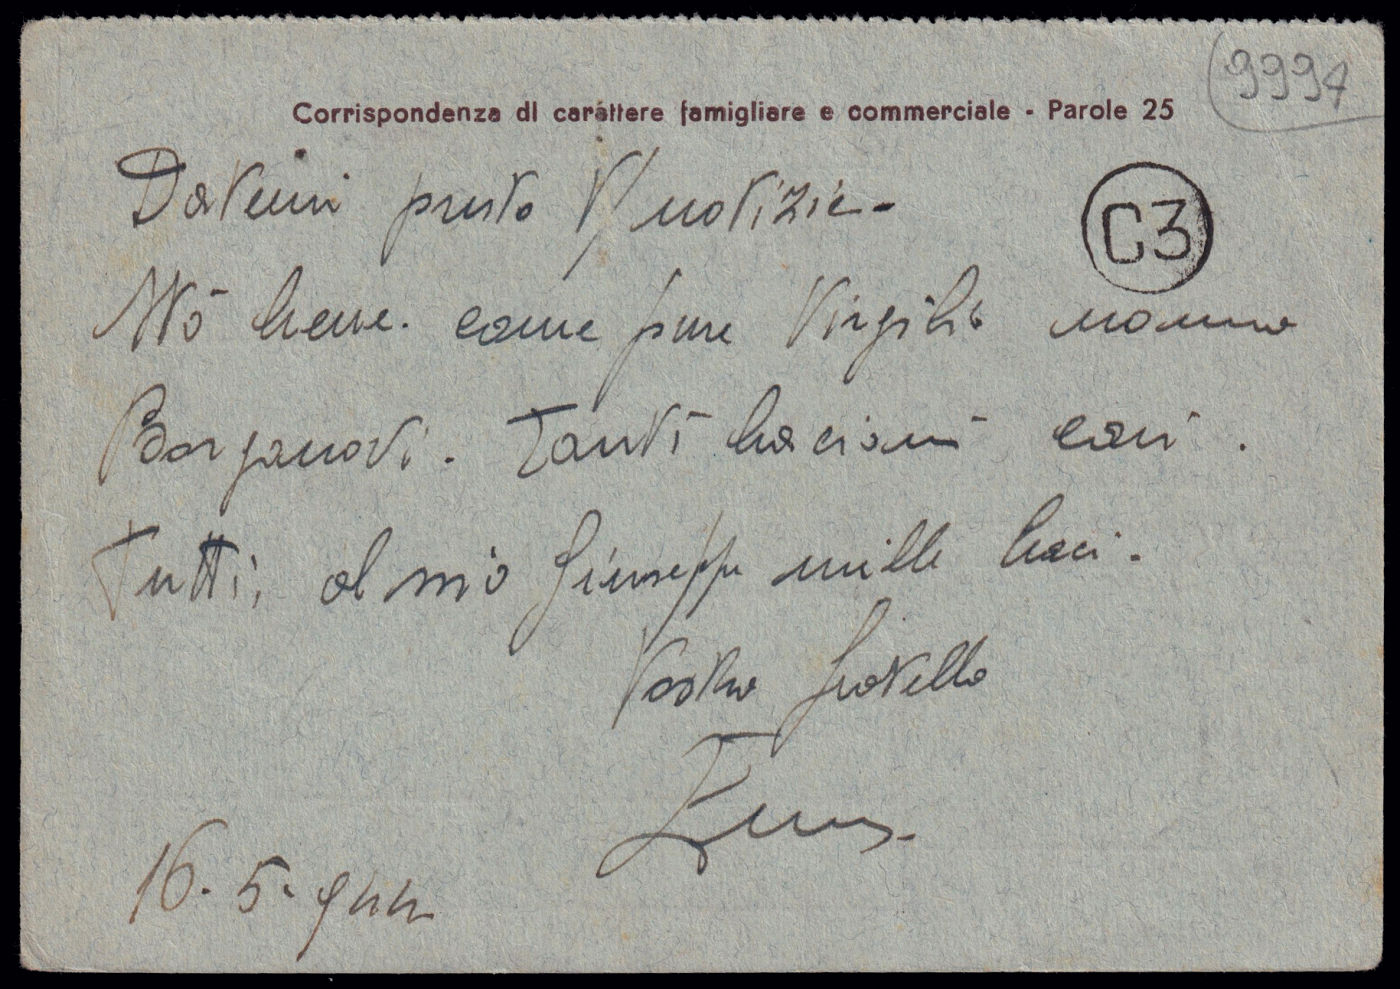 Corrispondenza di carattere famigliare e commerciale - Parole 25
9994
C3
Datemi presto V/ notizie -
Stò bene. come pure Virgilio nonna
Borganovi. Tanti bacioni cari.
Tutti, al mio Giuseppe mille baci.
Vostro fratello
16. 5. 944